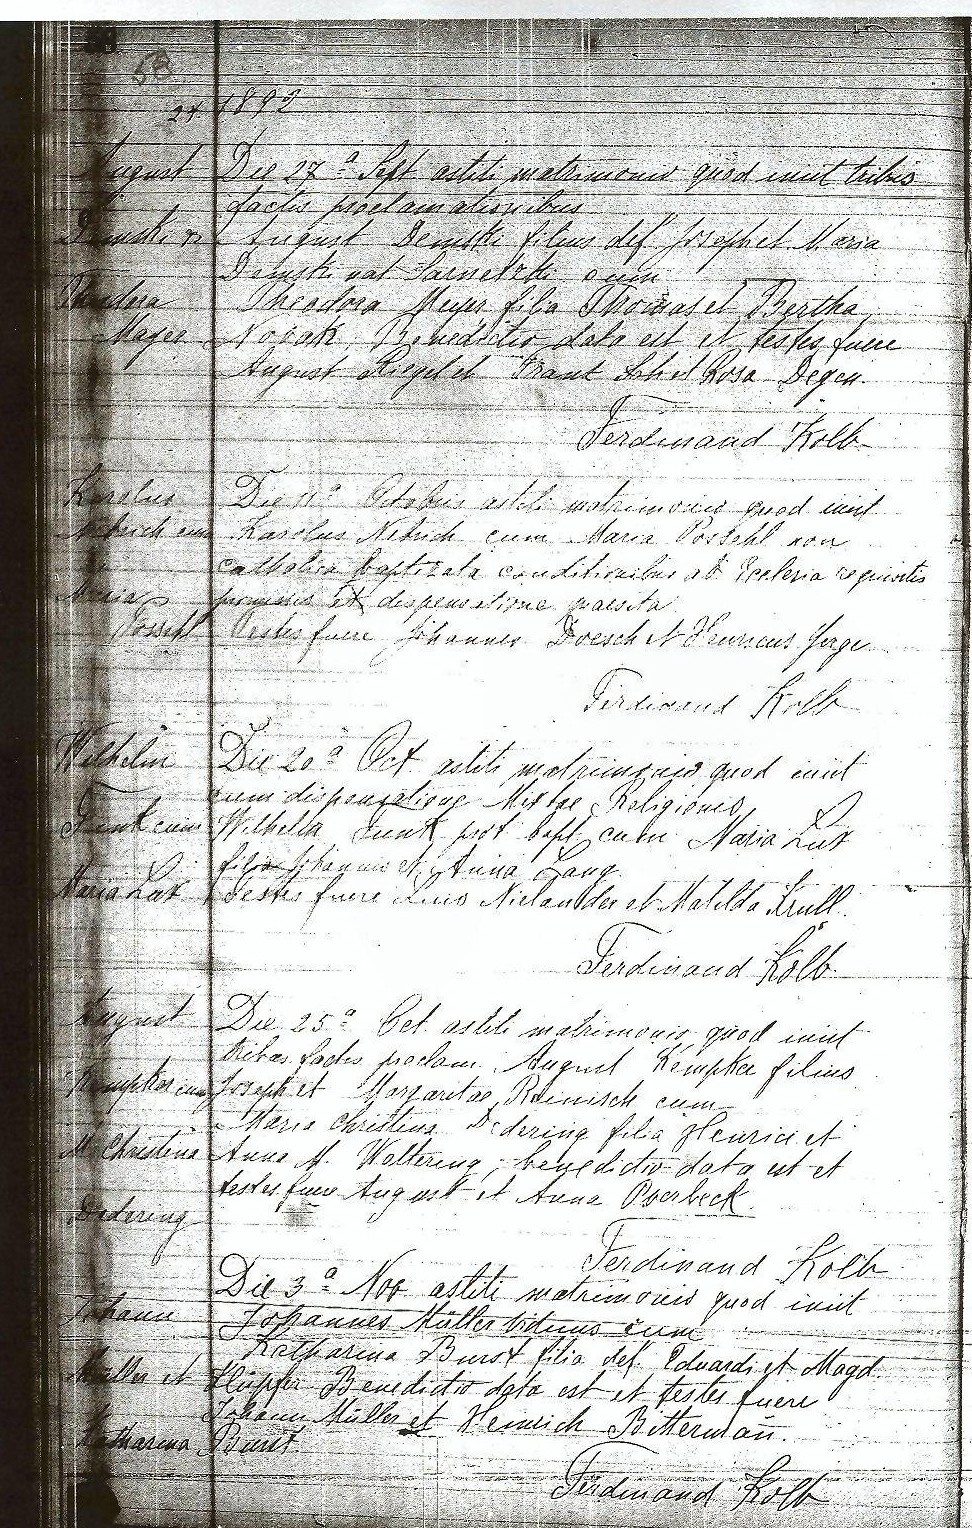 53
1892
August
Demski &
Theodora
Mayer
Die 27ª Sept astiti matrimonio quod iniit tribus
factis proclamationibus
August Demski filius def Joseph et Maria
Demski nat Sarnetzki cum
Theodora Meyer filia Thomas et Bertha
Novak, Benedictio data est et testes fuere
August Riegel et Frank Sch et Rosa Degen.
Ferdinand Kolb
Karolus
Nebrich cum
Maria
Possehl
Die 11ª Octobris astiti matrimonio quod iniit
Karolus Nebrich cum Maria Possehl non
catholica baptizata conditionibus ab Ecclesia requisitis
promissis et dispensatione praesita
Testes fuere Johannes Doesch et Henricus Jerge
Ferdinand Kolb
Wilhelm
Funk cum
Maria Lux
Die 20ª Oct astiti matrimonio quod iniit
cum dispensatione Mixtae Religionis
Funk prot bapt cum Maria Lux
filia Johannis et Anna Lang
Testes fuere Nielander et Matilda Krull.
Ferdinand Kolb
August
Kempker cum
M Christina
Dedering
Die 25ª Oct astiti matrimonio quod iniit
tribus factis proclam August Kempker filius
Joseph et Margaritae Reinisch cum
Maria Christina Dedering filia Henrici et
Anna M. Waltering, benedictio data est et
testes fuere August et Anna Overbeck.
Ferdinand Kolb
Johann
Müller et
Katharina Burst
Die 3ª Nov astiti matrimonio quod iniit
Johannes Müller viduus cum
Katharina Burst filia def Eduardi et Magd.
Hüpfer Benedictio data est et testes fuere
Johann Müller et Heinrich Bitterman.
Ferdinand Kolb